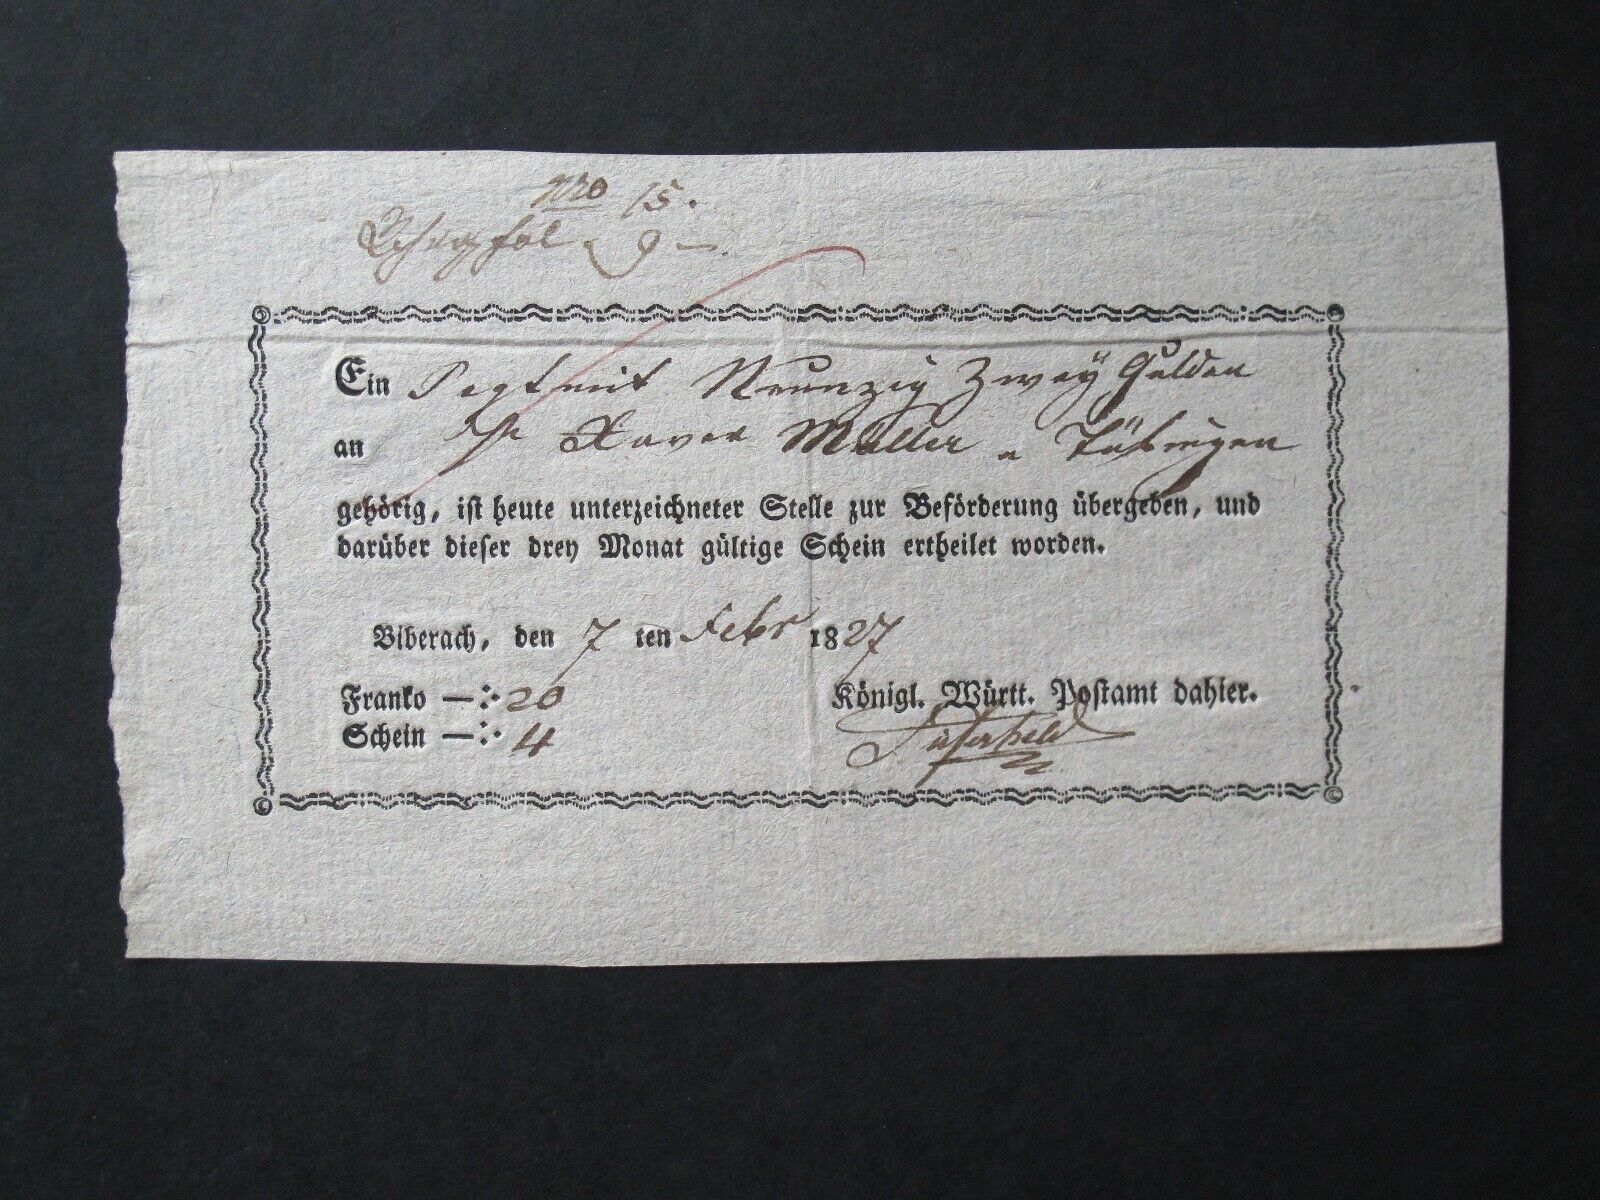 Nro 15.
Ein Paqt mit Neunzig Zwey Gulden
an Xaver Müller Tübingen
gehörig, ist heute unterzeichneter Stelle zur Beförderung übergeben, und
darüber dieser drey Monat gültige Schein ertheilet worden.
Biberach, den 7 ten Febr 1827
Franko —:· 20
Schein —:· 4
Königl. Württ. Postamt dahier.